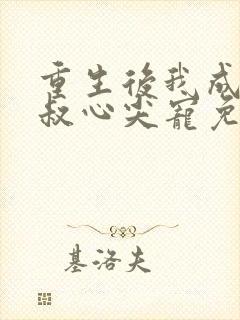 重生後我成
叔心尖寵免
基洛夫